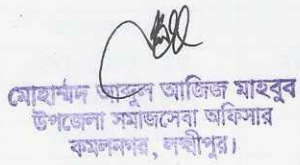 মোহাম্মদ আব্দুল আজিজ মাহবুব
উপজেলা সমাজসেবা অফিসার
কমলনগর, লক্ষ্মীপুর।